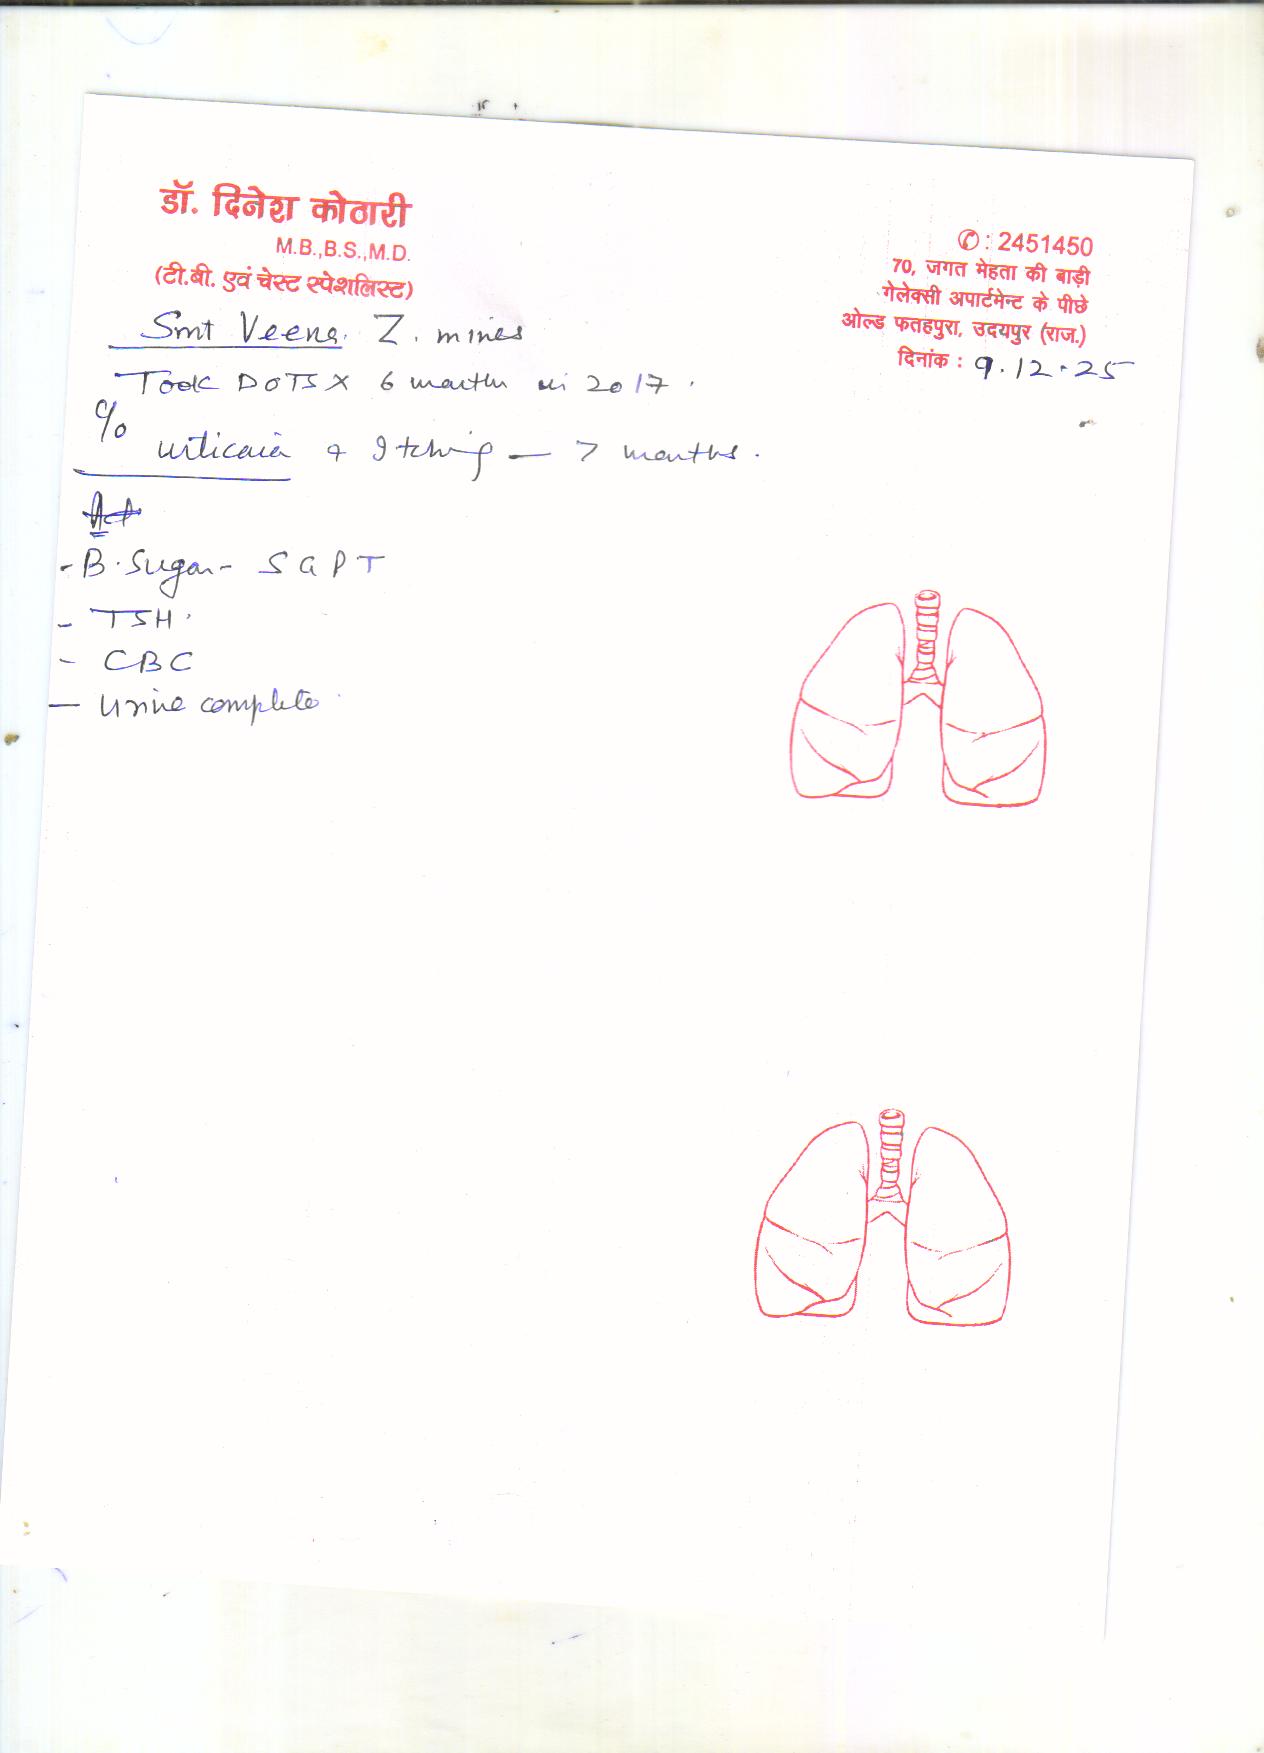 डॉ. दिनेश कोठारी
M.B.,B.S.,M.D.
(टी.बी. एवं चेस्ट स्पेशलिस्ट)
✆ : 2451450
70, जगत मेहता की बाड़ी
गेलेक्सी अपार्टमेन्ट के पीछे
ओल्ड फतहपुरा, उदयपुर (राज.)
दिनांक : 9.12.25
Smt Veena. Z. mines
Took DOTS X 6 months in 2017.
c/o
urticaria & Itching — 7 months.
- B. Sugar - SGPT
- TSH.
- CBC
- Urine complete